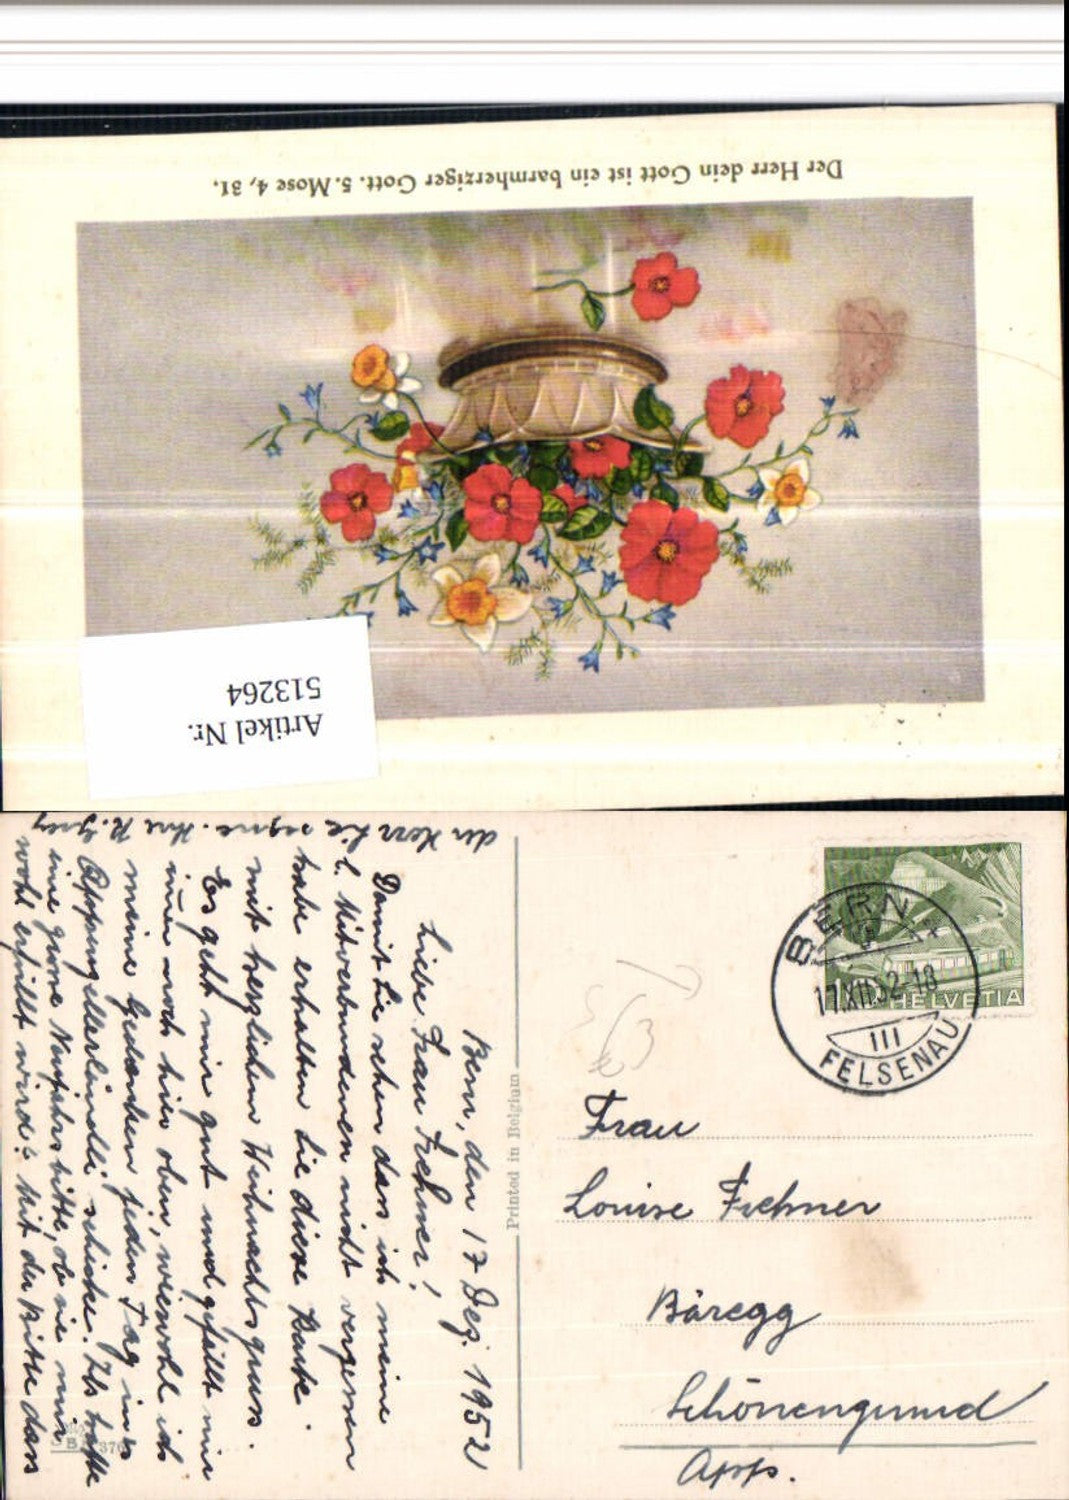 Der Herr dein Gott ist ein barmherziger Gott. 5. Mose 4, 31.
Artikel Nr.
513264
Bern, den 17 Dez. 1952
Liebe Frau Frehner!
Damit Sie sehen dass ich meine
l. Mitverbundenen nicht vergessen
habe erhalten Sie diese Karte
mit herzlichem Weihnachtsgruss.
Es geht mir gut und gefällt mir
immer noch hier oben, wiewohl ich
meine Gedanken jeden Tag ins
Appenzellerländli schicke. Ich hätte
eine grosse Neujahrsbitte, ob sie mir
wohl erfüllt wird? Mit der Bitte dass
der Herr Sie segne. Ihre R.
Printed in Belgium
376
BERN
17.XII.52-18
III
FELSENAU
HELVETIA
Frau
Louise Frehner
Bäregg
Schönengrund
App.